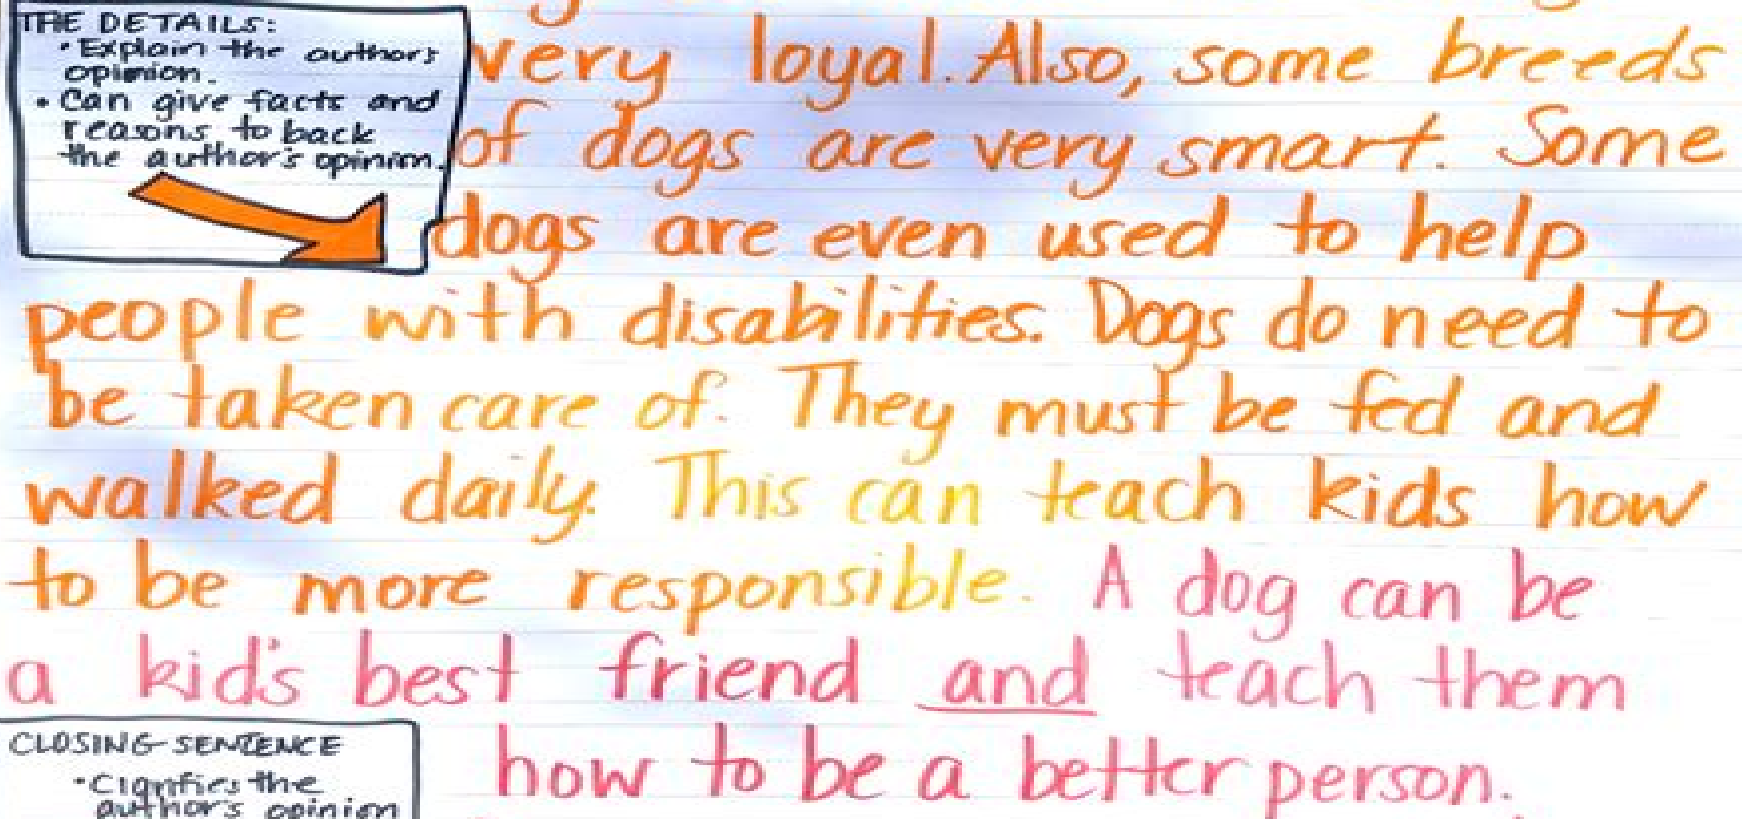 THE DETAILS:
• Explain the author's
opinion.
• Can give facts and
reasons to back
the author's opinion.
very loyal. Also, some breeds
of dogs are very smart. Some
dogs are even used to help
people with disabilities. Dogs do need to
be taken care of. They must be fed and
walked daily. This can teach kids how
to be more responsible. A dog can be
a kid's best friend and teach them
how to be a better person.
CLOSING SENTENCE
• Clarifies the
author's opinion